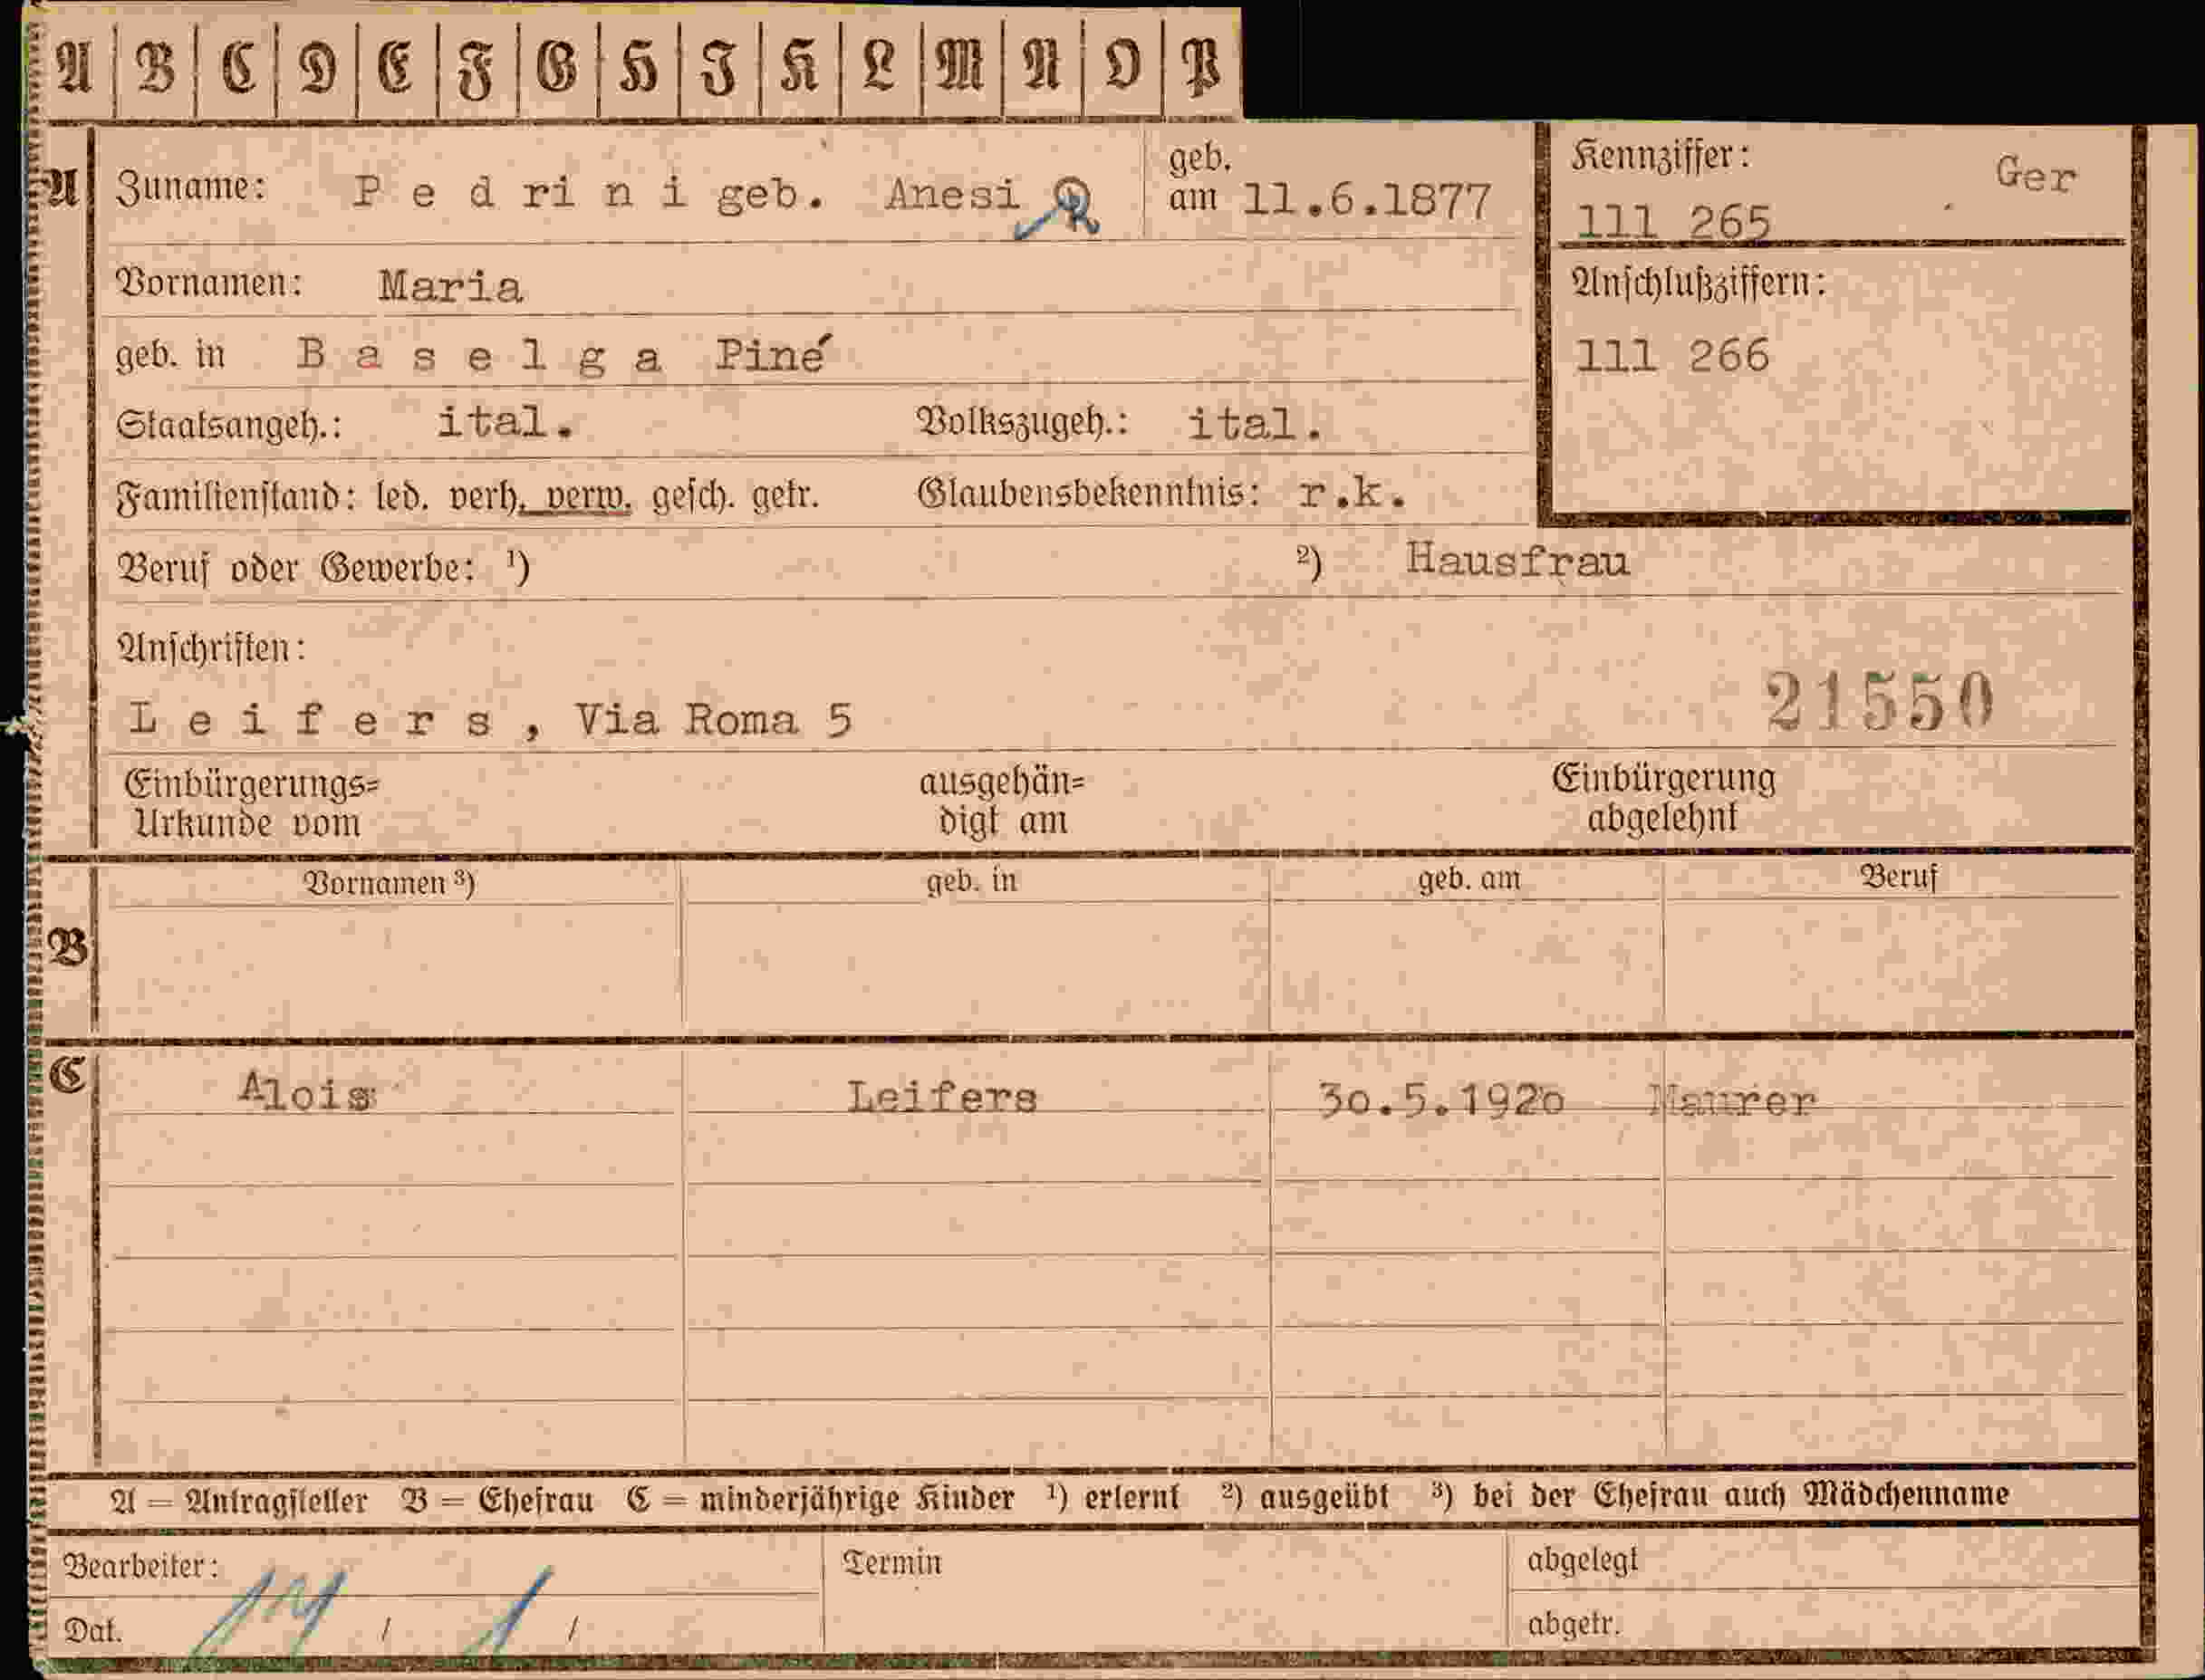 A B C D E F G H I K L M N O P
A
Zuname: Pedrini geb. Anesi
geb. am 11.6.1877
Kennziffer: Ger
111 265
Vornamen: Maria
Anschlußziffern:
111 266
geb. in Baselga Piné
Staatsangeh.: ital. Volkszugeh.: ital.
Familienstand: led. verh. verw. gesch. getr. Glaubensbekenntnis: r.k.
Beruf oder Gewerbe: ¹) ²) Hausfrau
Anschriften:
21550
Leifers, Via Roma 5
Einbürgerungs= ausgehän= Einbürgerung
Urkunde vom digt am abgelehnt
Vornamen ³) geb. in geb. am Beruf
B
C
Alois Leifers 30.5.1920 Maurer
A = Antragsteller B = Ehefrau C = minderjährige Kinder ¹) erlernt ²) ausgeübt ³) bei der Ehefrau auch Mädchenname
Bearbeiter: Termin abgelegt
Dat. / / abgetr.